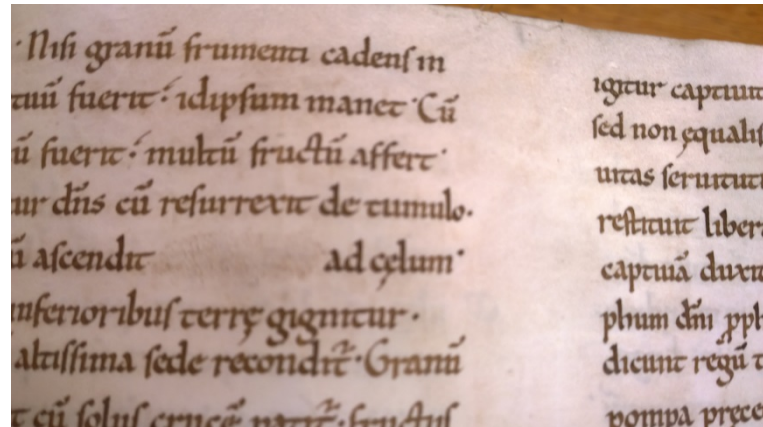 · Nisi granū frumenti cadens in
tuū fuerit : idipsum manet · Cū
ū fuerit : multū fructū affert ·
ur dn̄s cū resurrexit de tumulo ·
ū ascendit ad cęlum ·
inferioribus terrę gignitur ·
altissima sede recondit᷑ · Granū
t cū solus crucē patit᷑ · fructus
igitur captiuit
sed non ęqualis
uitas seruituti
restituit liber
captiuā duxit
phum dn̄i ꝓph
dicunt regū t
pompa pręce